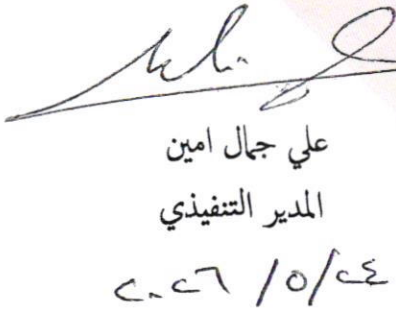 علي جمال امين
المدير التنفيذي
٢٠٢٦ /٥/٢٤